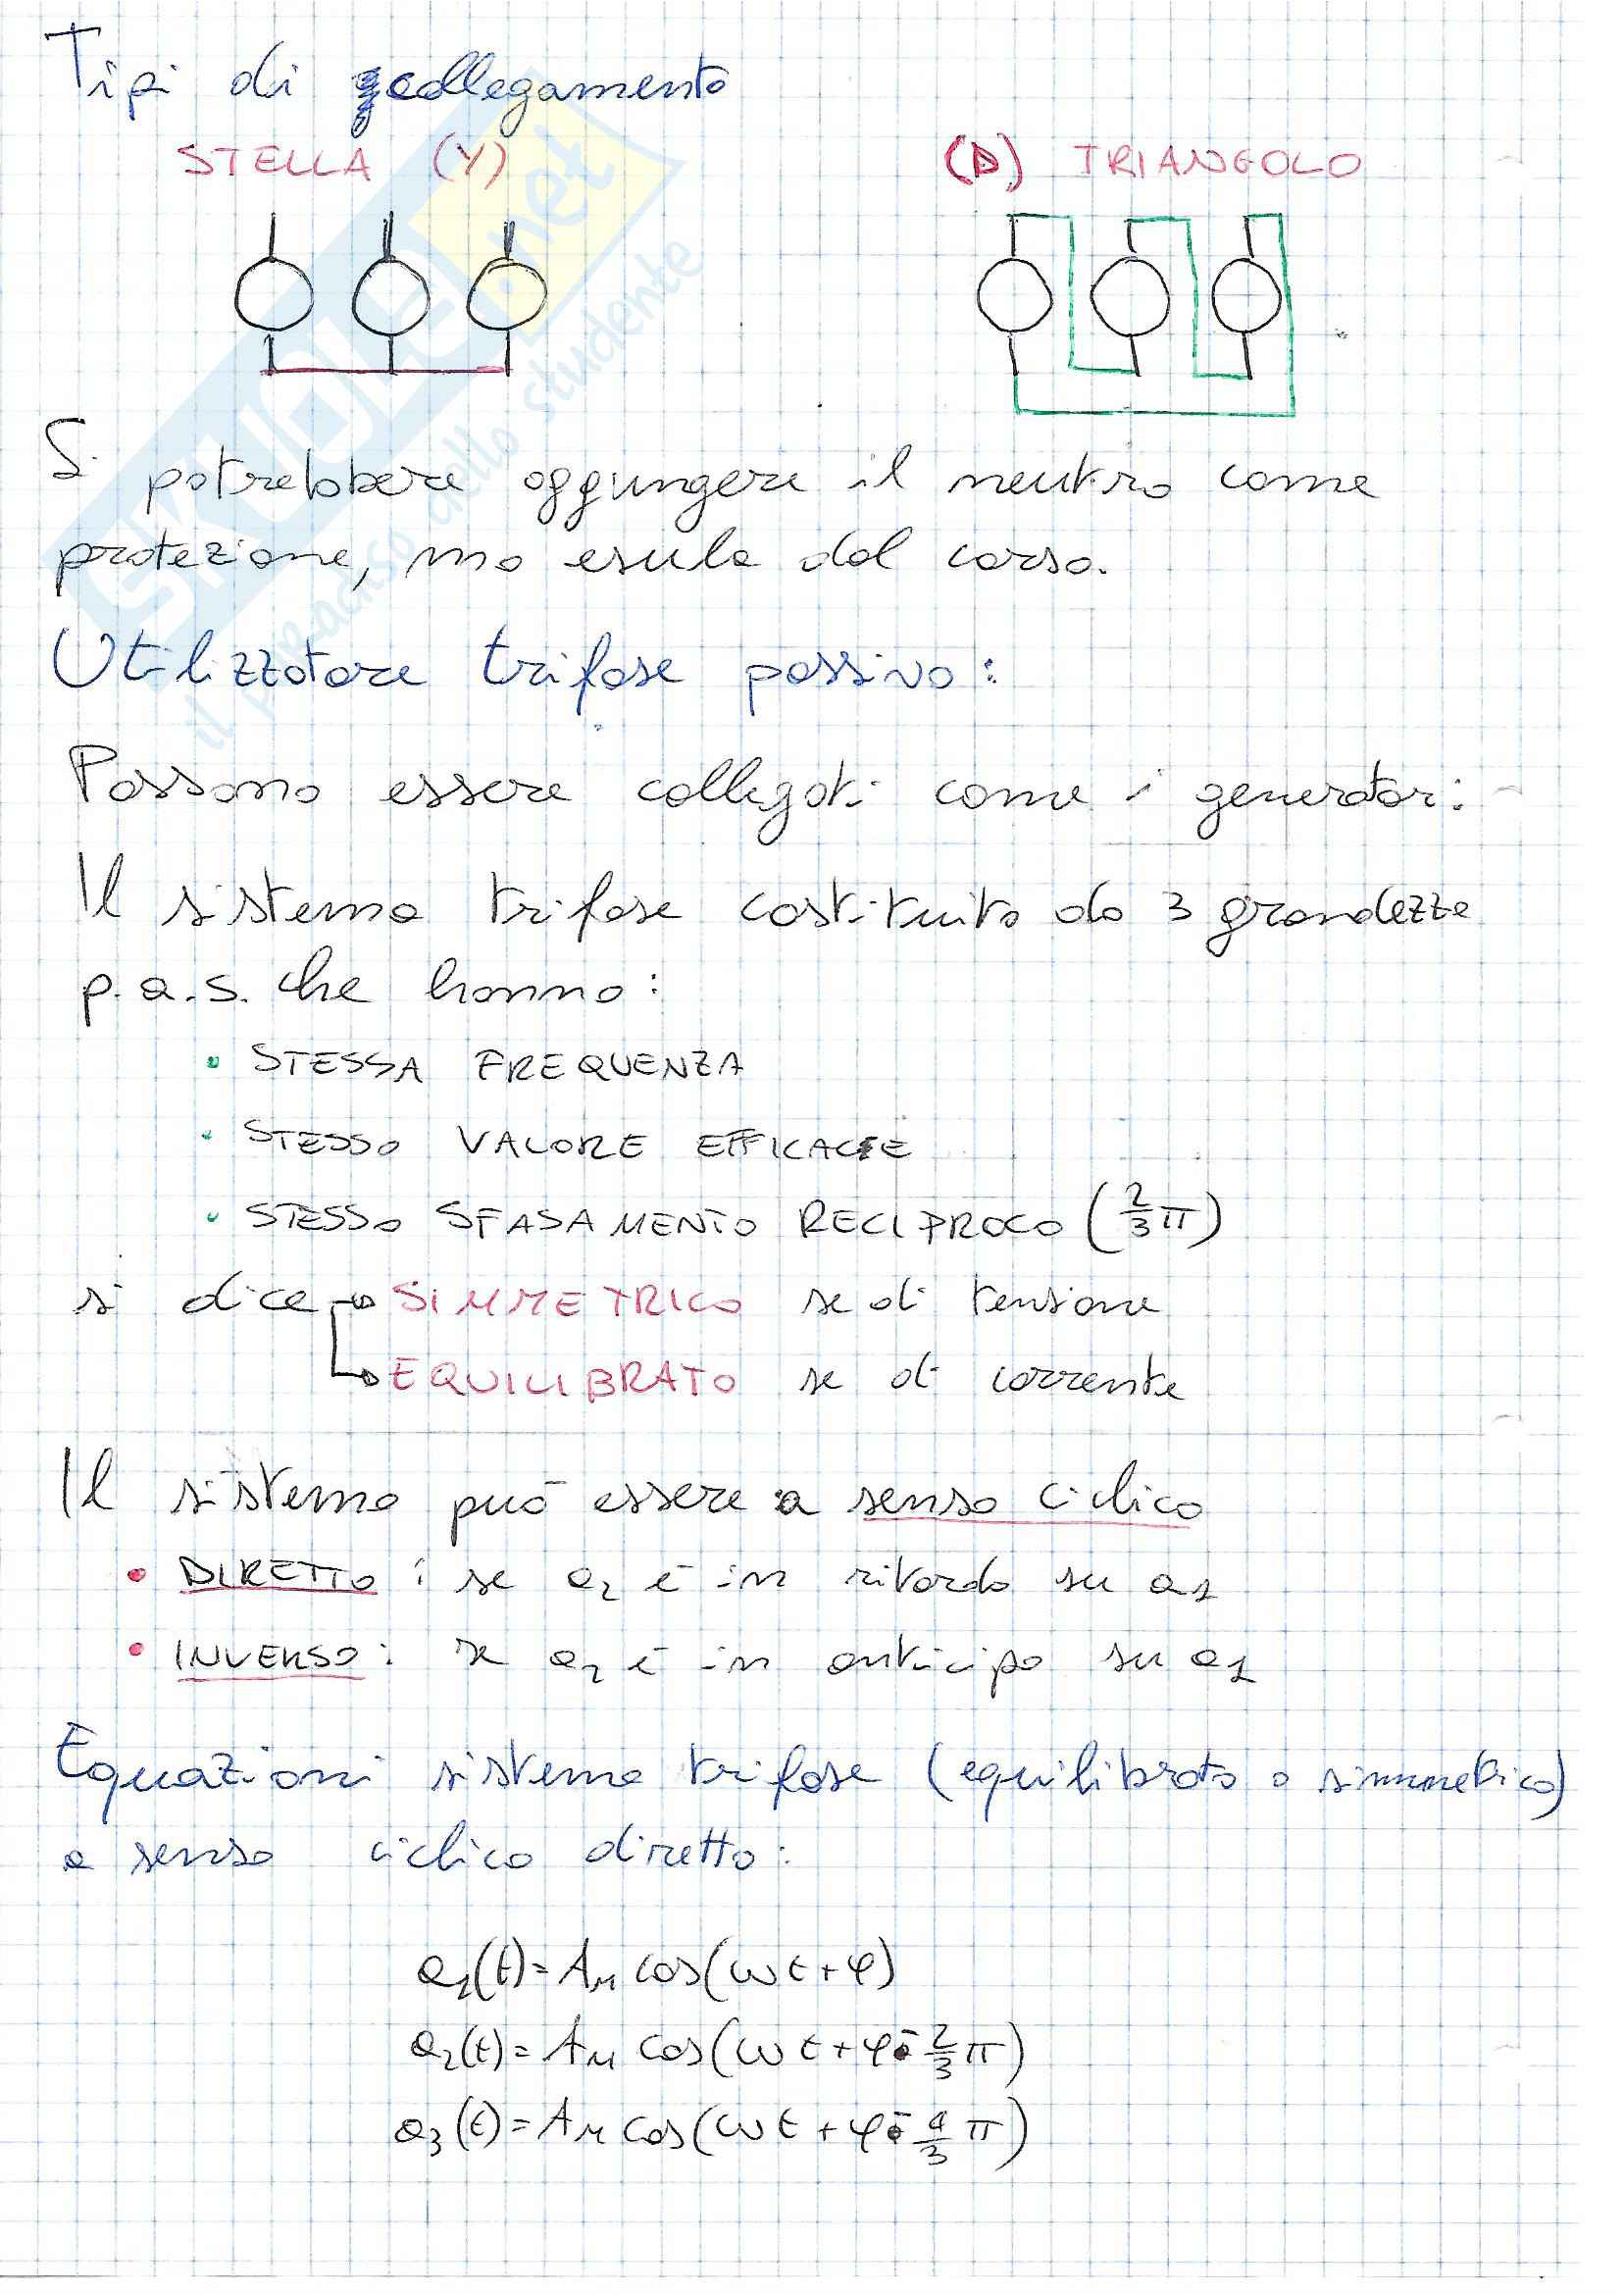 Tipi di collegamento
STELLA (Y)
(D) TRIANGOLO
Si potrebbere aggungere il neutro come
protezione, ma esula dal corso.
Utilizzatore trifase passivo:
Possono essere collegati come i generatori
Il sistema trifase costituito da 3 grandezze
p.a.s. che hanno:
• STESSA FREQUENZA
• STESSO VALORE EFFICACE
• STESSO SFASAMENTO RECIPROCO (2/3 π)
si dice → SIMMETRICO se di tensione
→ EQUILIBRATO se di corrente
Il sistema può essere a senso ciclico
• DIRETTO: se a2 è in ritardo su a1
• INVERSO: se a2 è in anticipo su a1
Equazioni sistema trifase (equilibrato o simmetrico)
a senso ciclico diretto:
a1(t) = AM cos(ωt + φ)
a2(t) = AM cos(ωt + φ - 2/3 π)
a3(t) = AM cos(ωt + φ - 4/3 π)
SKUOLA.net
il paradiso dello studente